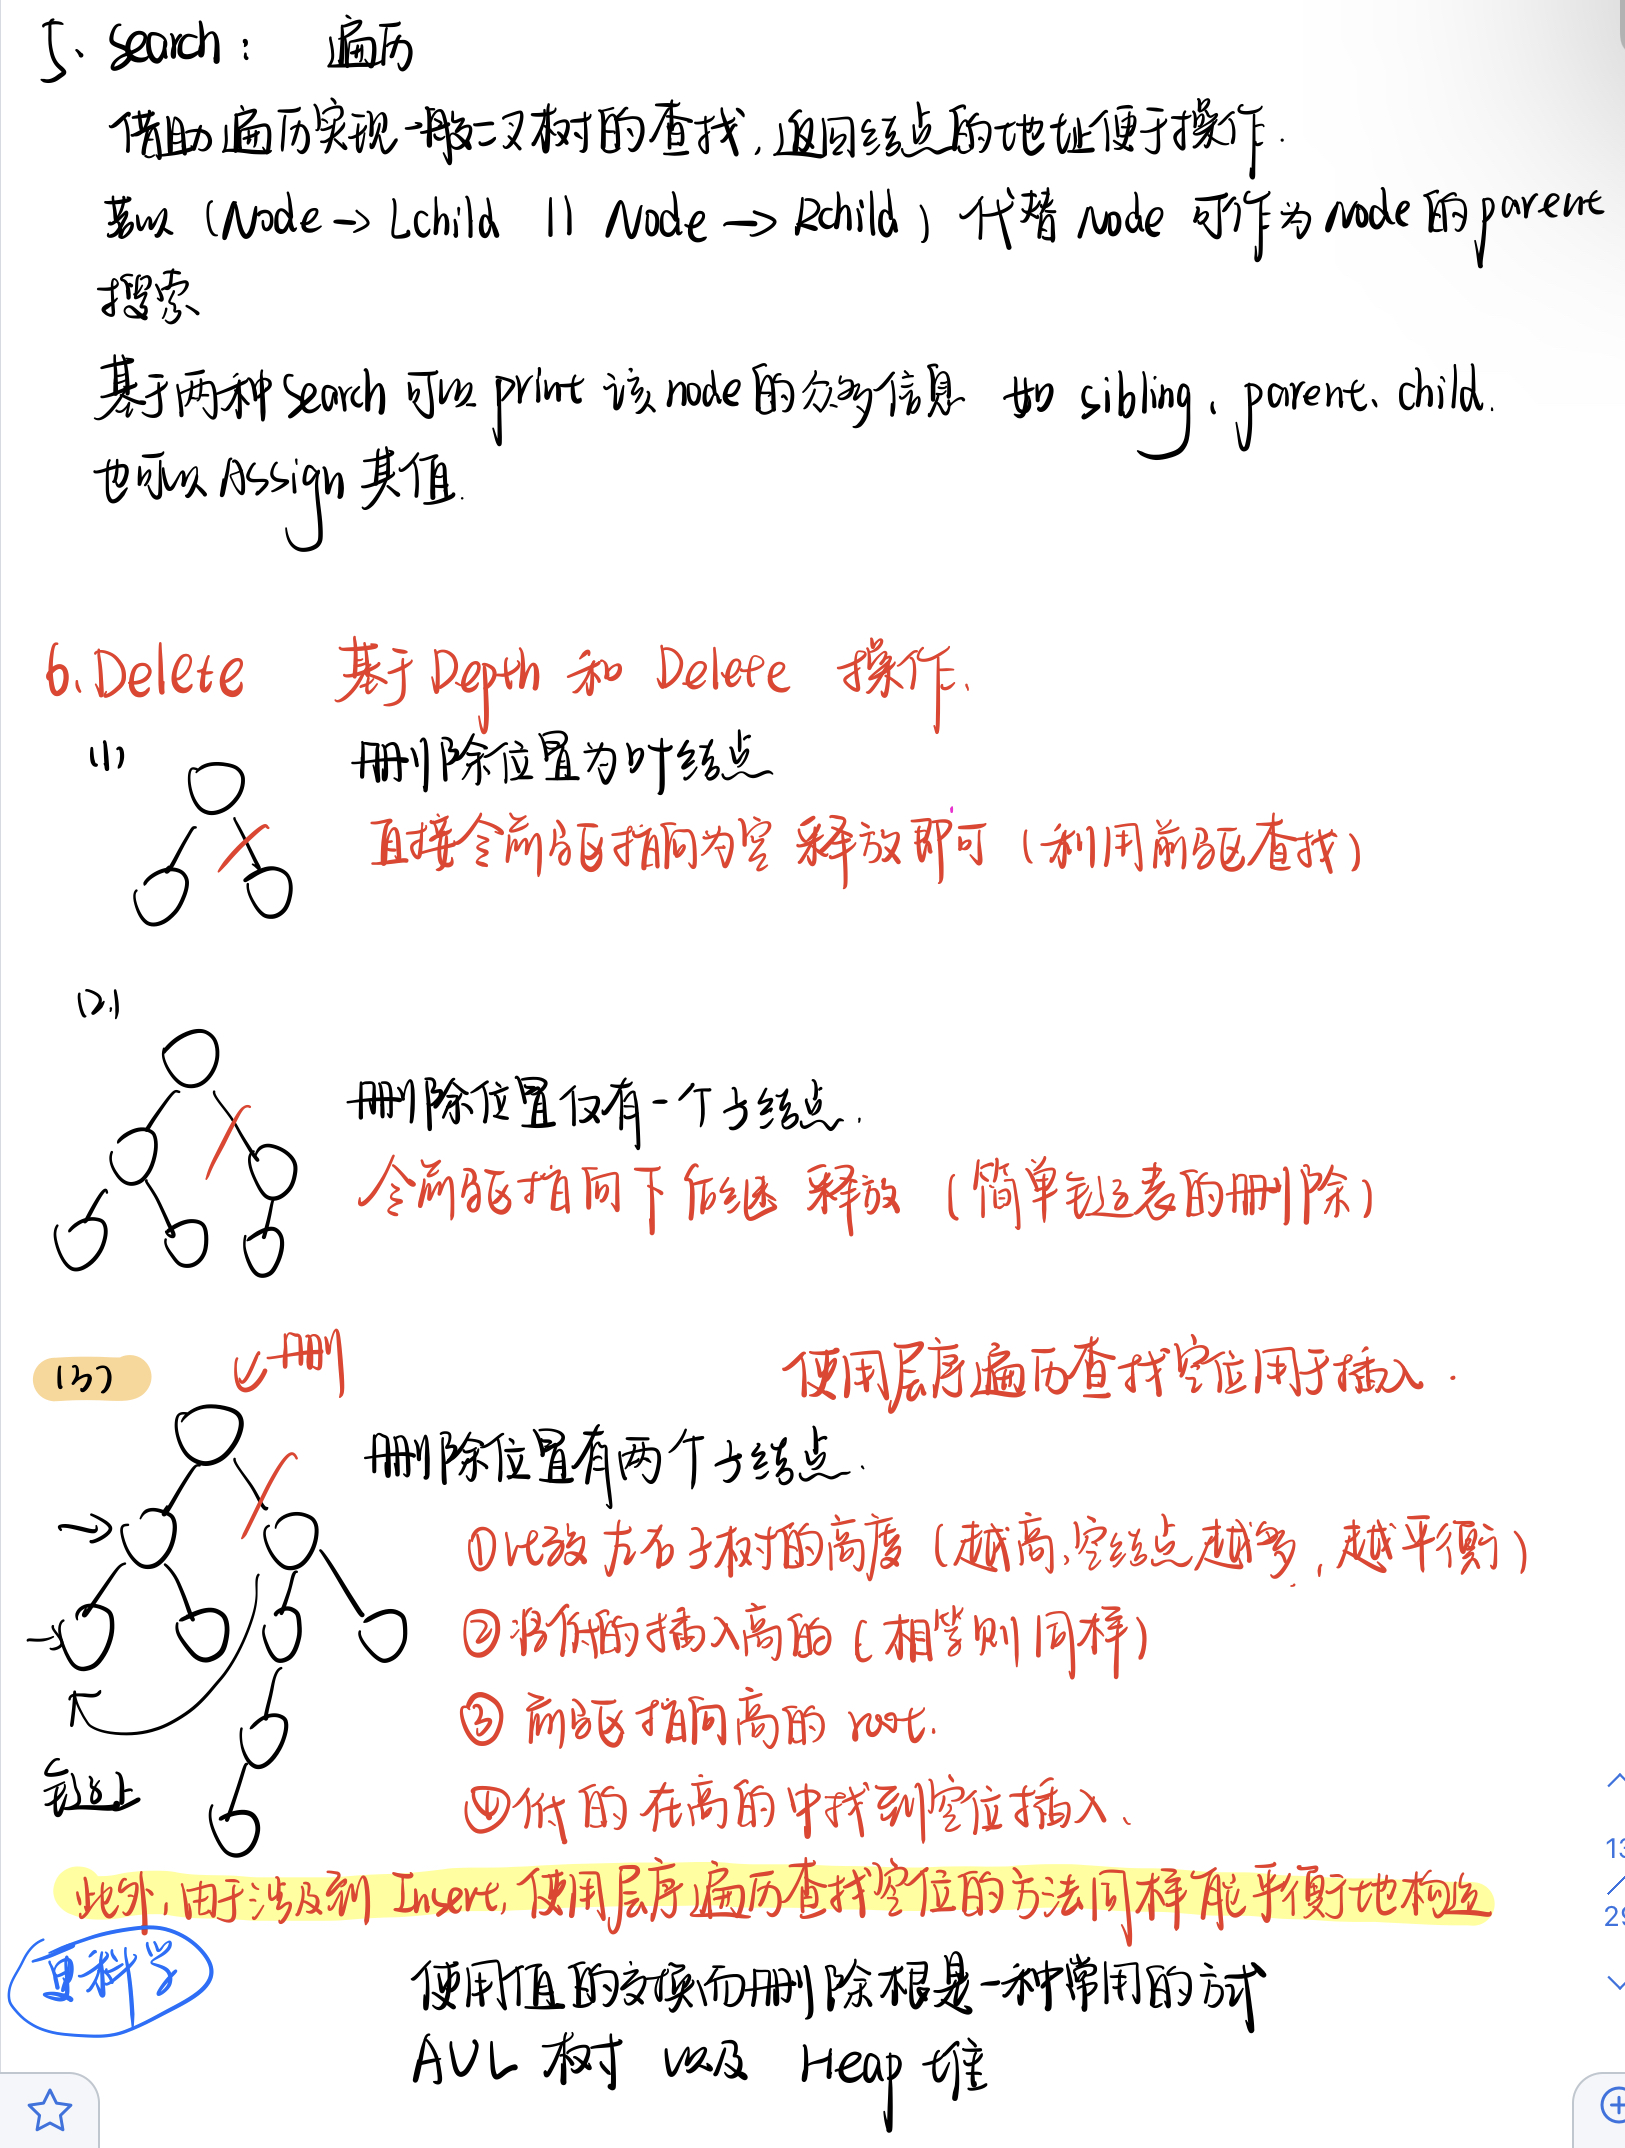 5、search： 遍历
借助遍历实现一般二叉树的查找,返回结点的地址便于操作.
若以 (Node→Lchild || Node→Rchild) 代替 Node 可作为 node 的 parent
搜索
基于两种 search 可以 print 该 node 的众多信息 如 sibling、parent、child.
也可以 Assign 其值.
6.Delete 基于 Depth 和 Delete 操作.
(1) 删除位置为叶结点
直接令前驱指向为空 释放即可 (利用前驱查找)
(2)
删除位置仅有一个子结点.
令前驱指向下后继 释放 (简单链表的删除)
删
(3) 使用层序遍历查找空位用于插入.
删除位置有两个子结点.
①比较左右子树的高度 (越高,空结点越多,越平衡)
②将低的插入高的 (相等则同样)
③ 前驱指向高的 root.
链上
④低的在高的中找到空位插入、
此外,由于涉及到 Insert,使用层序遍历查找空位的方法同样能平衡地构造
更科学
使用值的交换而删除根是一种常用的方式
AVL 树 以及 Heap 堆
13
/
29